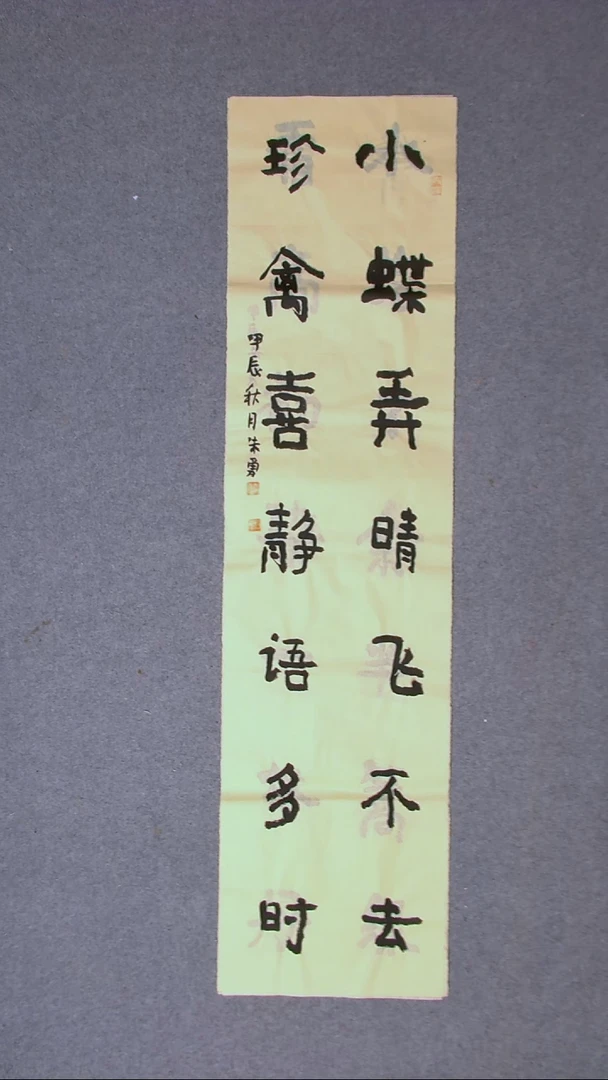 小蝶弄晴飞不去
珍禽喜静语多时
甲辰秋月朱勇